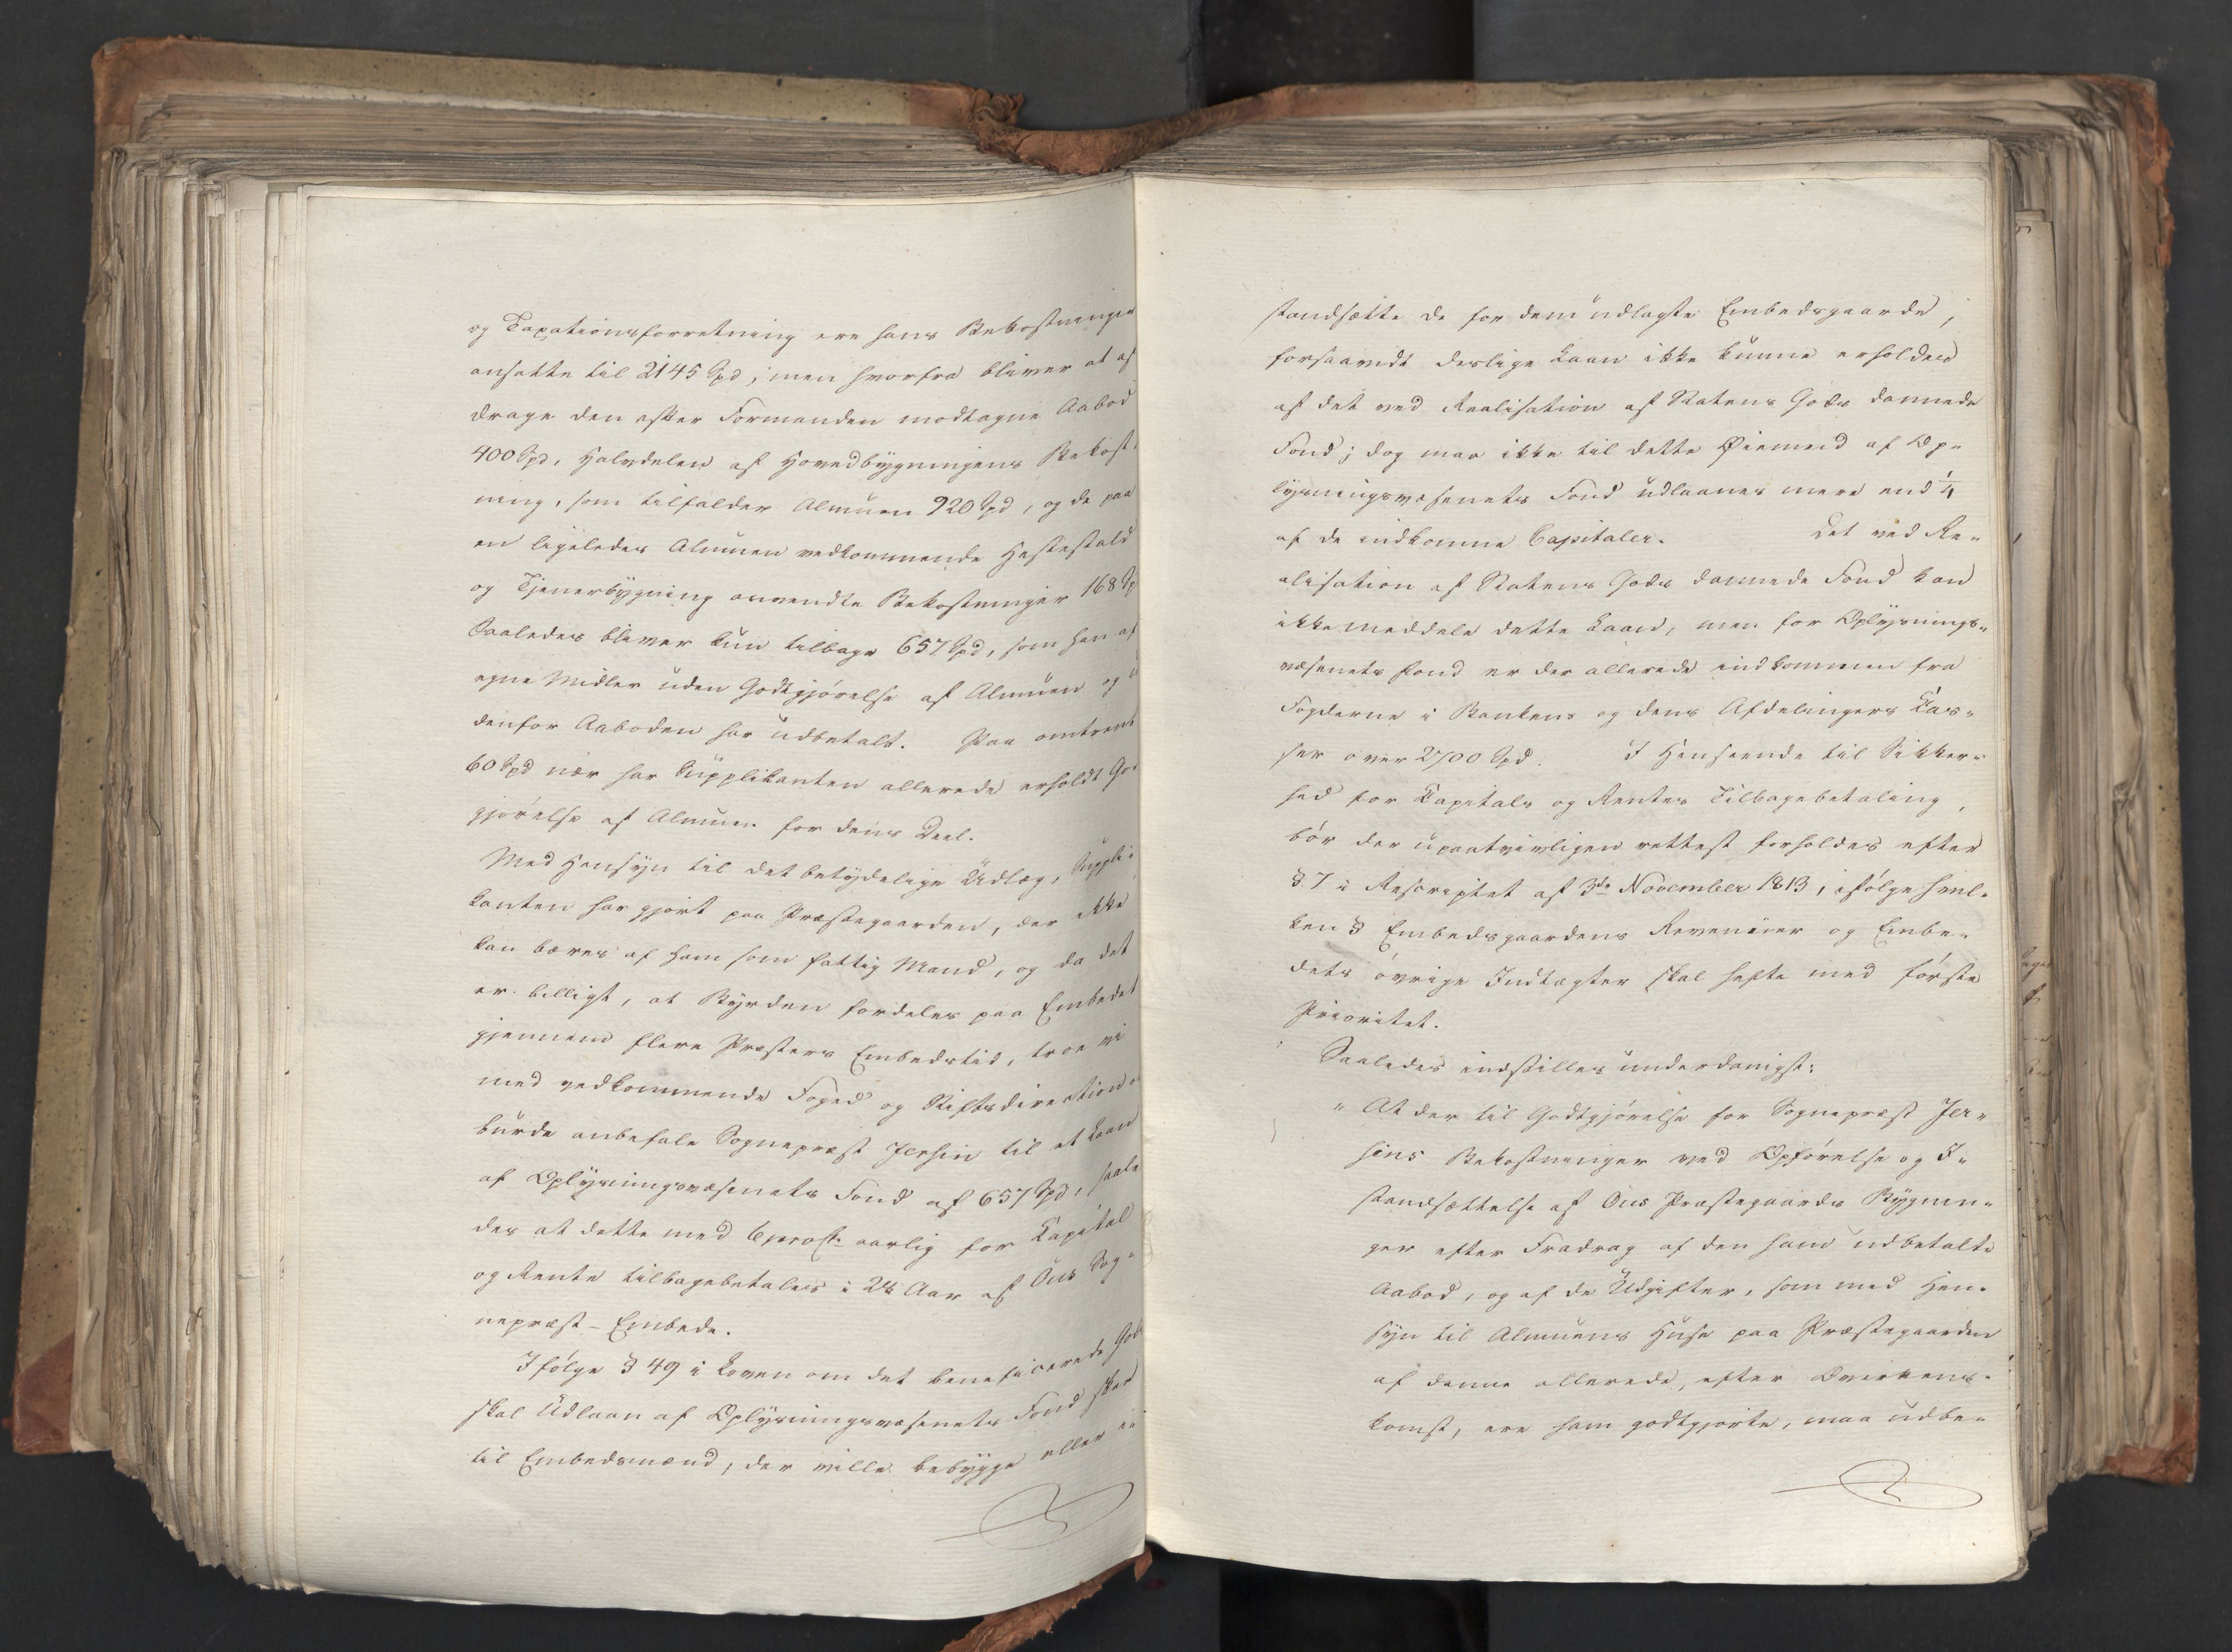 og Taxationsforretning ere hans Bekostninger
ansatte til 2145 Spd, men hvorfra bliver at af
drage den efter Formanden modtagne Aabod
400 Spd, Halvdelen af Hovedbygningens Bekost-
ning, som tilfalder Almuen 920 Spd, og de paa
en ligeledes Almuen vedkommende Hestestald
og Tjenerbygning anvendte Bekostninger 168 Sp
Saaledes bliver kun tilbage 657 Spd, som han af
egne Midler uden Godtgjørelse af Almuen og u
denfor Aaboden har udbetalt. Paa omtrent
60 Spd nær har Supplikanten allerede erholdt God
gjørelse af Almuen for dens Deel.
Med Hensyn til det betydelige Udlæg, Suppli-
kanten har gjort paa Præstegaarden, der ikke
kan bæres af ham som fattig Mand, og da det
er billigt, at Byrden fordeles paa Embedet
gjennem flere Præsters Embedstid, troe vi
med vedkommende Foged og Stiftsdirection at
burde anbefale Sognepræst Jersin til et Laan
af Oplysningsvæsenets Fond af 657 Spd, saale
des at dette med 6 procst. aarlig for Kapital
og Rente tilbagebetales i 28 Aar af Ous Sog-
nepræst-Embede.
Ifølge § 49 i Loven om det beneficerede Gods
skal Udlaan af Oplysningsvæsenets Fond skee
til Embedsmænd, der ville bebygge eller i
standsætte de for dem udlagte Embedsgaarde,
forsaavidt deslige Laan ikke kunne erholdes
af det ved Realisation af Statens Gods dannede
Fond; dog maa ikke til dette Øiemeed af Op-
lysningsvæsenets Fond udlaanes mere end 1/4
af de indkomne Capitaler. Det ved Re-
alisation af Statens Gods dannede Fond kan
ikke meddele dette Laan, men for Oplysnings-
væsenets Fond er der allerede indkommen fra
Fogderne i Bankens og dens Afdelingers Kas-
ser over 2700 Spd. I Henseende til Sikker-
hed for Kapitals og Rentes Tilbagebetaling,
bør der upaatvivligen rettest forholdes efter
§ 7 i Rescriptet af 3de November 1813, ifølge hvil-
ken § Embedsgaardens Revenuer og Embe-
dets øvrige Indtægter skal hefte med første
Prioritet.
Saaledes indstilles underdanigst:
" At der til Godtgjørelse for Sognepræst Jer-
sins Bekostninger ved Opførelse og I-
standsættelse af Ous Præstegaards Bygnin-
ger efter Fradrag af den ham udbetalte
Aabod, og af de Udgifter, som med Hen-
syn til Almuens Huse paa Præstegaarden
af denne allerede, efter Overeens-
komst, ere ham godtgjorte, maa udbe-